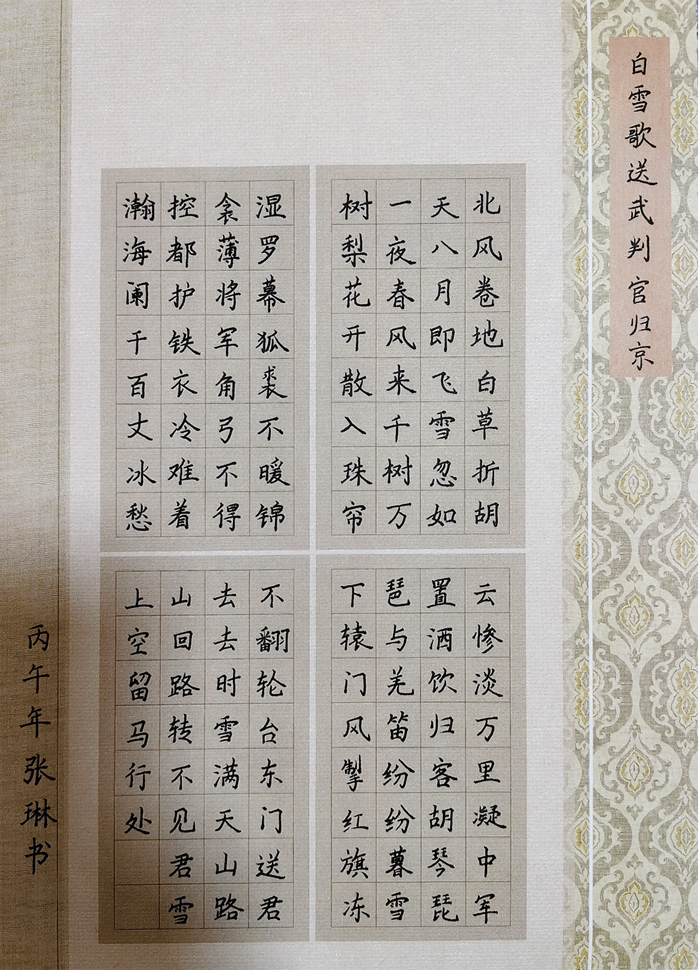 白雪歌送武判官归京
北风卷地白草折胡
天八月即飞雪忽如
一夜春风来千树万
树梨花开散入珠帘
湿罗幕狐裘不暖锦
衾薄将军角弓不得
控都护铁衣冷难着
瀚海阑千百丈冰愁
云惨淡万里凝中军
置酒饮归客胡琴琵
琶与羌笛纷纷暮雪
下辕门风掣红旗冻
不翻轮台东门送君
去去时雪满天山路
山回路转不见君雪
上空留马行处
丙午年张琳书